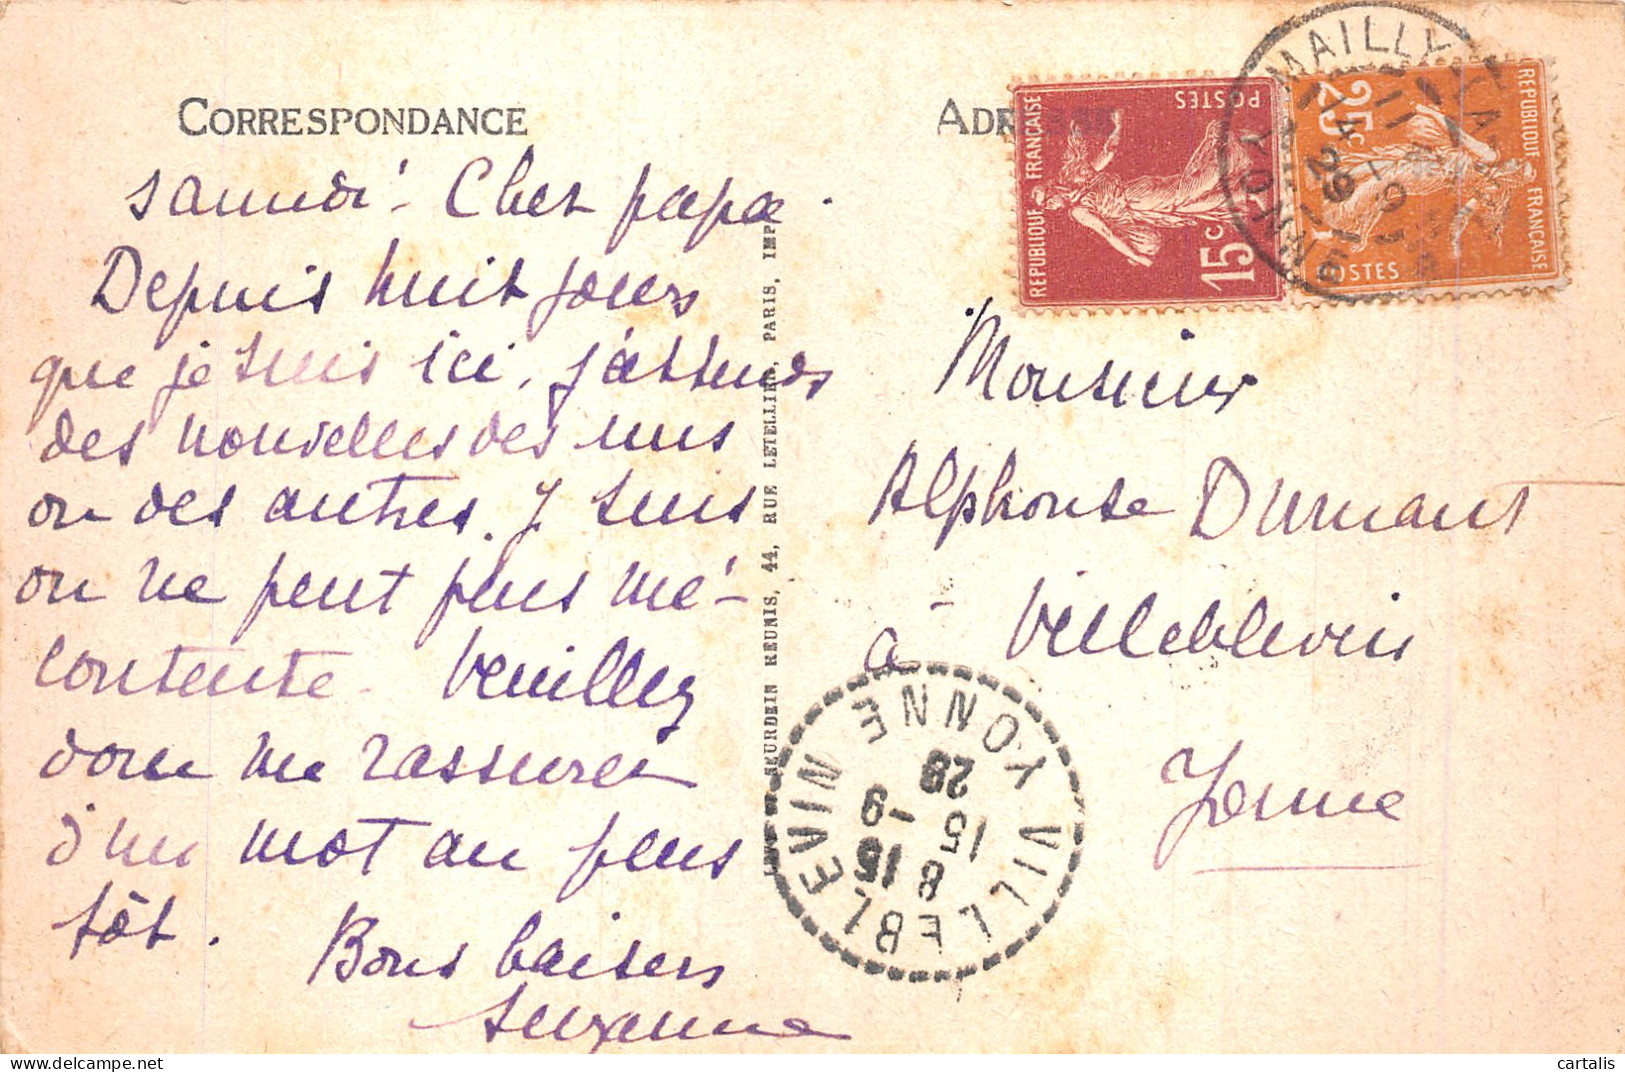 CORRESPONDANCE
samedi - Cher papa.
Depuis huit jours
que je suis ici, j'attends
des nouvelles des uns
ou des autres. J suis
on ne peut plus mé-
contente. Veuillez
donc me rassurer
d'un mot au plus
tôt.
Bons baisers
Suzanne
LEVY NEURDEIN REUNIS, 44, RUE LETELLIER, PARIS, IMP.
ADR
REPUBLIQUE FRANÇAISE
POSTES
15c
REPUBLIQUE FRANÇAISE
25c
POSTES
MAILLY
YONNE
29
Monsieur
Alphonse Durnant
à Villeblevin
Yonne
VILLEBLEVIN YONNE
8 15
15 -9
29
cartalis